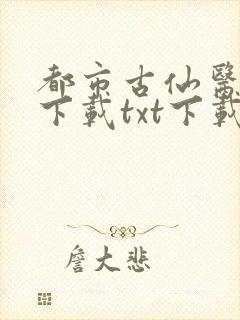 都市古仙醫
下載txt下載
詹大悲